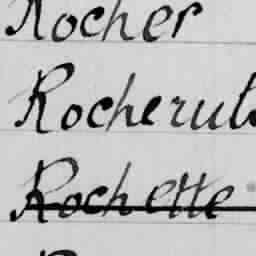 Rocher
Rocherul
Rochette